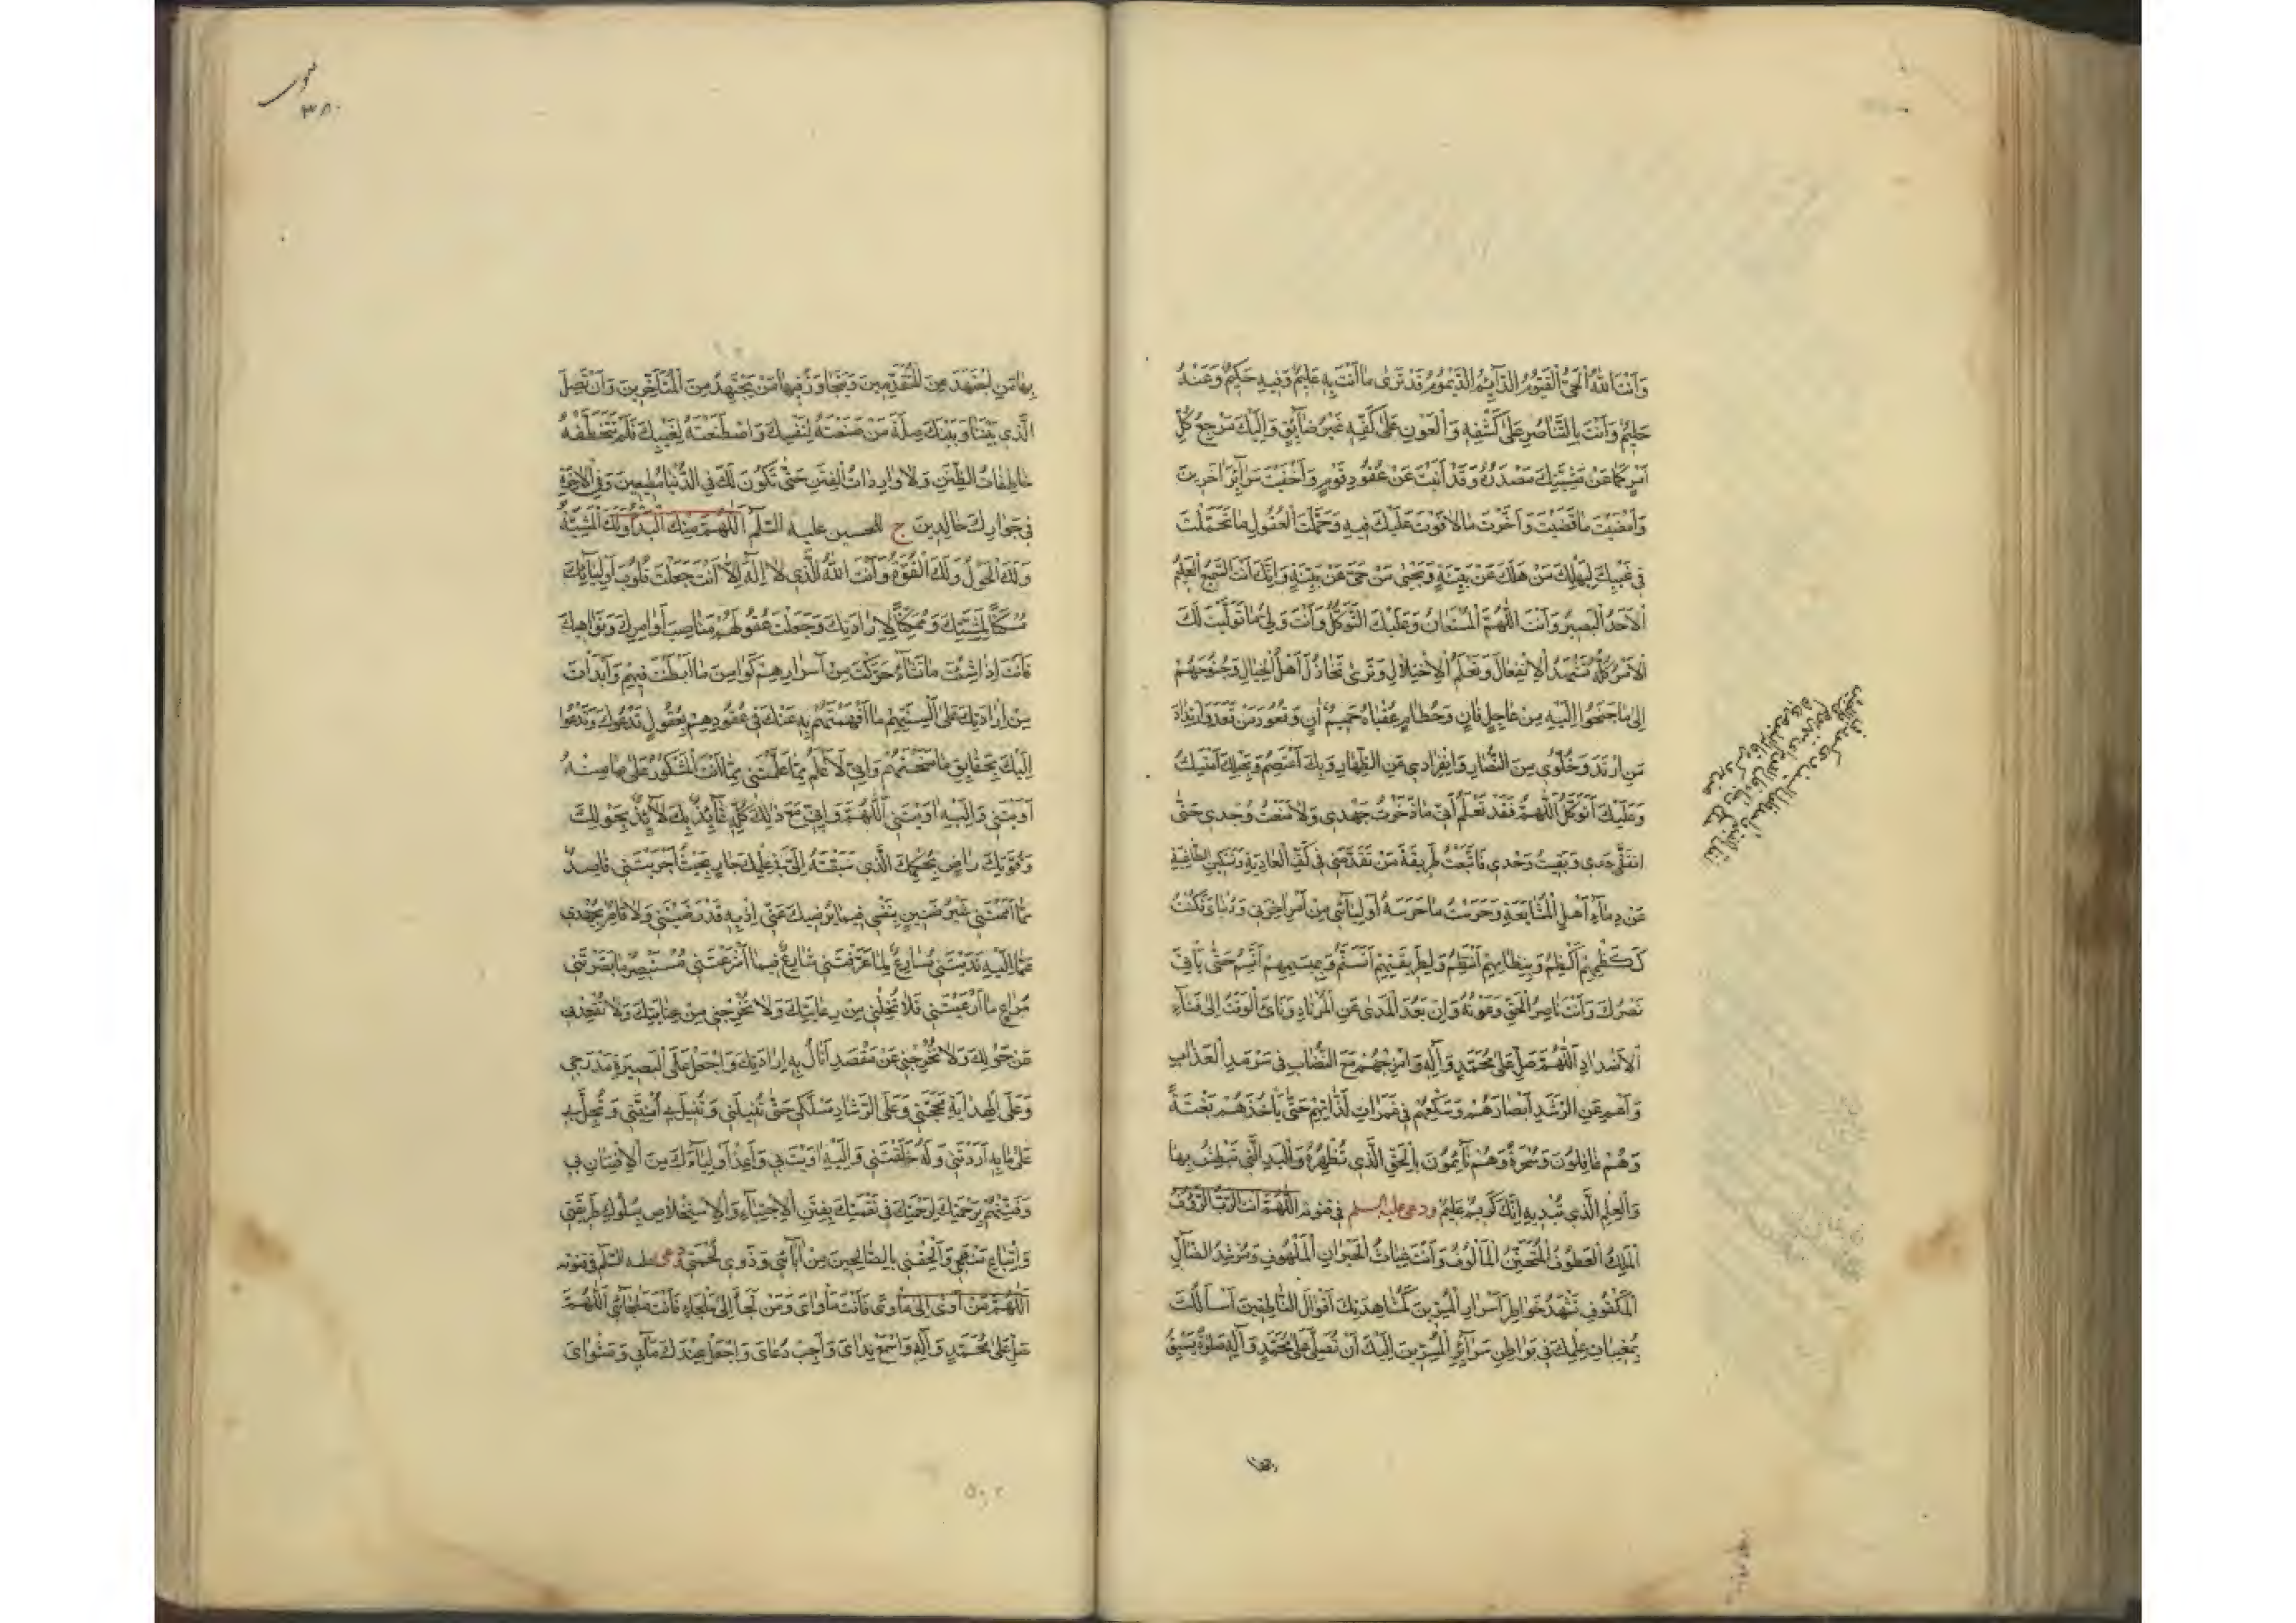 وَأَنْتَ اللهُ الْحَيُّ الْقَيُّومُ الدَّآئِمُ الدَّيْمُومُ قَدْ تَرٰى مٰا أَنْتَ بِهِ عَلِيمٌ وَفِيهِ حَكِيمٌ وَعَنْهُ
حَلِيمٌ وَأَنْتَ بِالتَّنٰاصُرِ عَلىٰ كَشْفِهِ وَالْعَوْنِ عَلىٰ كَفِّهِ غَيْرُ ضٰآئِقٍ وَإِلَيْكَ مَرْجِعُ كُلِّ
أَمْرٍ كَمٰا عَنْ مَشِيَّتِكَ مَصْدَرُهُ وَقَدْ أَبَنْتَ عَنْ عُقُودِ قَوْمٍ وَأَخْفَيْتَ سَرٰآئِرَ آخَرِينَ
وَأَمْضَيْتَ مٰا قَضَيْتَ وَأَخَّرْتَ مٰا لٰا فَوْتَ عَلَيْكَ فِيهِ وَحَمَّلْتَ الْعُقُولَ مٰا تَحَمَّلَتْ
فِي غَيْبِكَ لِيَهْلِكَ مَنْ هَلَكَ عَنْ بَيِّنَةٍ وَيَحْيٰى مَنْ حَيَّ عَنْ بَيِّنَةٍ وَإِنَّكَ أَنْتَ السَّمِيعُ الْعَلِيمُ
الْأَحَدُ الْبَصِيرُ وَأَنْتَ اللّٰهُمَّ الْمُسْتَعٰانُ وَعَلَيْكَ التَّوَكُّلُ وَأَنْتَ وَلِيُّ مٰا تَوَلَّيْتَ لَكَ
الْأَمْرُ كُلُّهُ تَشْهَدُ الْاِنْفِعٰالَ وَتَعْلَمُ الْاِخْتِلٰالَ وَتَرٰى تَخٰاذُلَ أَهْلِ الْخَبٰالِ وَجُنُوحَهُمْ
إِلىٰ مٰا جَنَحُوا إِلَيْهِ مِنْ عٰاجِلٍ فٰانٍ وَحُطٰامٍ عُقْبٰاهُ حَمِيمٌ آنٍ وَقُعُودَ مَنْ قَعَدَ وَارْتِدٰادَ
مَنِ ارْتَدَّ وَخُلُوِّي مِنَ النُّصّٰارِ وَانْفِرٰادِي عَنِ الظُّهّٰارِ وَبِكَ أَعْتَصِمُ وَبِحَبْلِكَ أَسْتَمْسِكُ
وَعَلَيْكَ أَتَوَكَّلُ اللّٰهُمَّ فَقَدْ تَعْلَمُ أَنِّي مٰا ذَخَرْتُ جَهْدِي وَلٰا مَنَعْتُ وُجْدِي حَتّٰى
انْفَلَّ حَدِّي وَبَقِيتُ وَحْدِي فَاتَّبَعْتُ طَرِيقَةَ مَنْ تَقَدَّمَنِي فِي كَفِّ الْعٰادِيَةِ وَتَسْكِينِ الطّٰاغِيَةِ
عَنْ دِمٰآءِ أَهْلِ الْمُشٰايَعَةِ وَحَرَسْتُ مٰا حَرَسَهُ أَوْلِيٰآئِي مِنْ أَمْرِ آخِرَتِي وَدُنْيٰايَ فَكُنْتُ
كَكَظْمِهِمْ أَكْظِمُ وَبِنِظٰامِهِمْ أَنْتَظِمُ وَلِطَرِيقَتِهِمْ أَتَسَنَّمُ وَبِمِيسَمِهِمْ أَتَّسِمُ حَتّٰى يَأْتِيَ
نَصْرُكَ وَأَنْتَ نٰاصِرُ الْحَقِّ وَعَوْنُهُ وَإِنْ بَعُدَ الْمَدىٰ عَنِ الْمُرْتٰادِ وَنَأَى الْوَقْتُ إِلىٰ فَنٰآءِ
الْأَضْدٰادِ اللّٰهُمَّ صَلِّ عَلىٰ مُحَمَّدٍ وَآلِهِ وَامْزُجْهُمْ مَعَ النُّصّٰابِ فِي سَرْمَدِ الْعَذٰابِ
وَأَعْمِ عَنِ الرُّشْدِ أَبْصٰارَهُمْ وَسَكِّعْهُمْ فِي غَمَرٰاتِ لَذّٰاتِهِمْ حَتّٰى تَأْخُذَهُمْ بَغْتَةً
وَهُمْ غٰافِلُونَ وَسُحْرَةً وَهُمْ نٰآئِمُونَ بِالْحَقِّ الَّذِي تُظْهِرُهُ وَالْيَدِ الَّتِي تَبْطِشُ بِهٰا
وَالْعِلْمِ الَّذِي تُبْدِيهِ إِنَّكَ كَرِيمٌ عَلِيمٌ ودعى عليه السلم في قنوته اللّٰهُمَّ أَنْتَ الرَّبُّ الرَّؤُفُ
الْمَلِكُ الْعَطُوفُ الْمُتَحَنِّنُ الْمَأْلُوفُ وَأَنْتَ غِيٰاثُ الْحَيْرٰانِ الْمَلْهُوفِ وَمُرْشِدُ الضّٰآلِّ
الْمَكْفُوفِ تَشْهَدُ خَوٰاطِرَ أَسْرٰارِ الْمُسِرِّينَ كَمُشٰاهَدَتِكَ أَقْوٰالَ النّٰاطِقِينَ أَسْأَلُكَ
بِمُغَيَّبٰاتِ عِلْمِكَ فِي بَوٰاطِنِ سَرٰآئِرِ الْمُسِرِّينَ إِلَيْكَ أَنْ تُصَلِّيَ عَلىٰ مُحَمَّدٍ وَآلِهِ صَلٰوةً يَسْبِقُ
بِهٰا مَنِ اجْتَهَدَ مِنَ الْمُتَقَدِّمِينَ وَيَتَجٰاوَزُ فِيهٰا مَنْ يَجْتَهِدُ مِنَ الْمُتَأَخِّرِينَ وَأَنْ تَصِلَ
الَّذِي بَيْنَنٰا وَبَيْنَكَ صِلَةَ مَنْ صَنَعْتَهُ لِنَفْسِكَ وَاصْطَنَعْتَهُ لِغَيْبِكَ فَلَمْ تَتَخَطَّفْهُ
خٰاطِفٰاتُ الظِّنَنِ وَلٰا وٰارِدٰاتُ الْفِتَنِ حَتّٰى نَكُونَ لَكَ فِي الدُّنْيٰا مُطِيعِينَ وَفِي الْآخِرَةِ
فِي جِوٰارِكَ خٰالِدِينَ ج للحسين عليه السّلم اَللّٰهُمَّ مِنْكَ الْبَدْأُ وَلَكَ الْمَشِيَّةُ
وَلَكَ الْحَوْلُ وَلَكَ الْقُوَّةُ وَأَنْتَ اللهُ الَّذِي لٰا إِلٰهَ إِلّٰا أَنْتَ جَعَلْتَ قُلُوبَ أَوْلِيٰآئِكَ
مَسْكَنًا لِمَشِيَّتِكَ وَمَمْكَنًا لِإِرٰادَتِكَ وَجَعَلْتَ عُقُولَهُمْ مَنٰاصِبَ أَوٰامِرِكَ وَنَوٰاهِيكَ
فَأَنْتَ إِذٰا شِئْتَ مٰا تَشٰآءُ حَرَّكْتَ مِنْ أَسْرٰارِهِمْ كَوٰامِنَ مٰا أَبْطَنْتَ فِيهِمْ وَأَبْدَأْتَ
مِنْ إِرٰادَتِكَ عَلىٰ أَلْسِنَتِهِمْ مٰا أَفْهَمْتَهُمْ بِهِ عَنْكَ فِي عُقُودِهِمْ بِعُقُولٍ تَدْعُوكَ وَتَدْعُوا
إِلَيْكَ بِحَقٰايِقِ مٰا مَنَحْتَهُمْ وَإِنِّي لَأَعْلَمُ مِمّٰا عَلَّمْتَنِي مِمّٰا أَنْتَ الْمَشْكُورُ عَلىٰ مٰا مِنْهُ
أَرَيْتَنِي وَإِلَيْهِ أوَيْتَنِي اَللّٰهُمَّ وَإِنِّي مَعَ ذٰلِكَ كُلِّهِ عٰآئِذٌ بِكَ لٰآئِذٌ بِحَوْلِكَ
وَقُوَّتِكَ رٰاضٍ بِحُكْمِكَ الَّذِي سُقْتَهُ إِلَيَّ فِي عِلْمِكَ جٰارٍ بِحَيْثُ أَجْرَيْتَنِي قٰاصِدٌ
مٰا أَمَمْتَنِي غَيْرُ ضَنِينٍ بِنَفْسِي فِيمٰا يُرْضِيكَ عَنِّي إِذْ بِهِ قَدْ رَضَّيْتَنِي وَلٰا قٰاصِرٌ بِجُهْدِي
عَمّٰا إِلَيْهِ نَدَبْتَنِي مُسٰارِعٌ لِمٰا عَرَّفْتَنِي شٰارِعٌ فِيمٰا أَشْرَعْتَنِي مُسْتَبْصِرٌ مٰا بَصَّرْتَنِي
مُرٰاعٍ مٰا أَرْعَيْتَنِي فَلٰا تُخْلِنِي مِنْ رِعٰايَتِكَ وَلٰا تُخْرِجْنِي مِنْ عِنٰايَتِكَ وَلٰا تُقْعِدْنِي
عَنْ حَوْلِكَ وَلٰا تُخْرِجْنِي عَنْ مَقْصَدٍ أَنٰالُ بِهِ إِرٰادَتَكَ وَاجْعَلْ عَلَى الْبَصِيرَةِ مَدْرَجَتِي
وَعَلَى الْهِدٰايَةِ مَحَجَّتِي وَعَلَى الرَّشٰادِ مَسْلَكِي حَتّٰى تُنِيلَنِي وَتُنِيلَ بِي أُمْنِيَّتِي وَتُحِلَّ بِي
عَلىٰ مٰا بِهِ أَرَدْتَنِي وَلَهُ خَلَقْتَنِي وَإِلَيْهِ اوَيْتَ بِي وَأَعِذْ أَوْلِيٰآءَكَ مِنَ الْاِفْتِتٰانِ بِي
وَفَتِّنْهُمْ بِرَحْمَتِكَ لِرَحْمَتِكَ فِي نِعْمَتِكَ تَفْتِينَ الْاِجْتِبٰآءِ وَالْاِسْتِخْلٰاصِ بِسُلُوكِ طَرِيقَتِي
وَاتِّبٰاعِ مَنْهَجِي وَأَلْحِقْنِي بِالصّٰالِحِينَ مِنْ آبٰآئِي وَذَوِي لُحْمَتِي ودعى عليه السّلم في قنوته
اَللّٰهُمَّ مَنْ أَوىٰ إِلىٰ مَأْوىً فَأَنْتَ مَأْوٰايَ وَمَنْ لَجَأَ إِلىٰ مَلْجَإٍ فَأَنْتَ مَلْجٰائِي اَللّٰهُمَّ
صَلِّ عَلىٰ مُحَمَّدٍ وَآلِهِ وَاسْمَعْ نِدٰايَ وَأَجِبْ دُعٰايَ وَاجْعَلْ عِنْدَكَ مَآبِي وَمَثْوٰايَ
٣٨٠